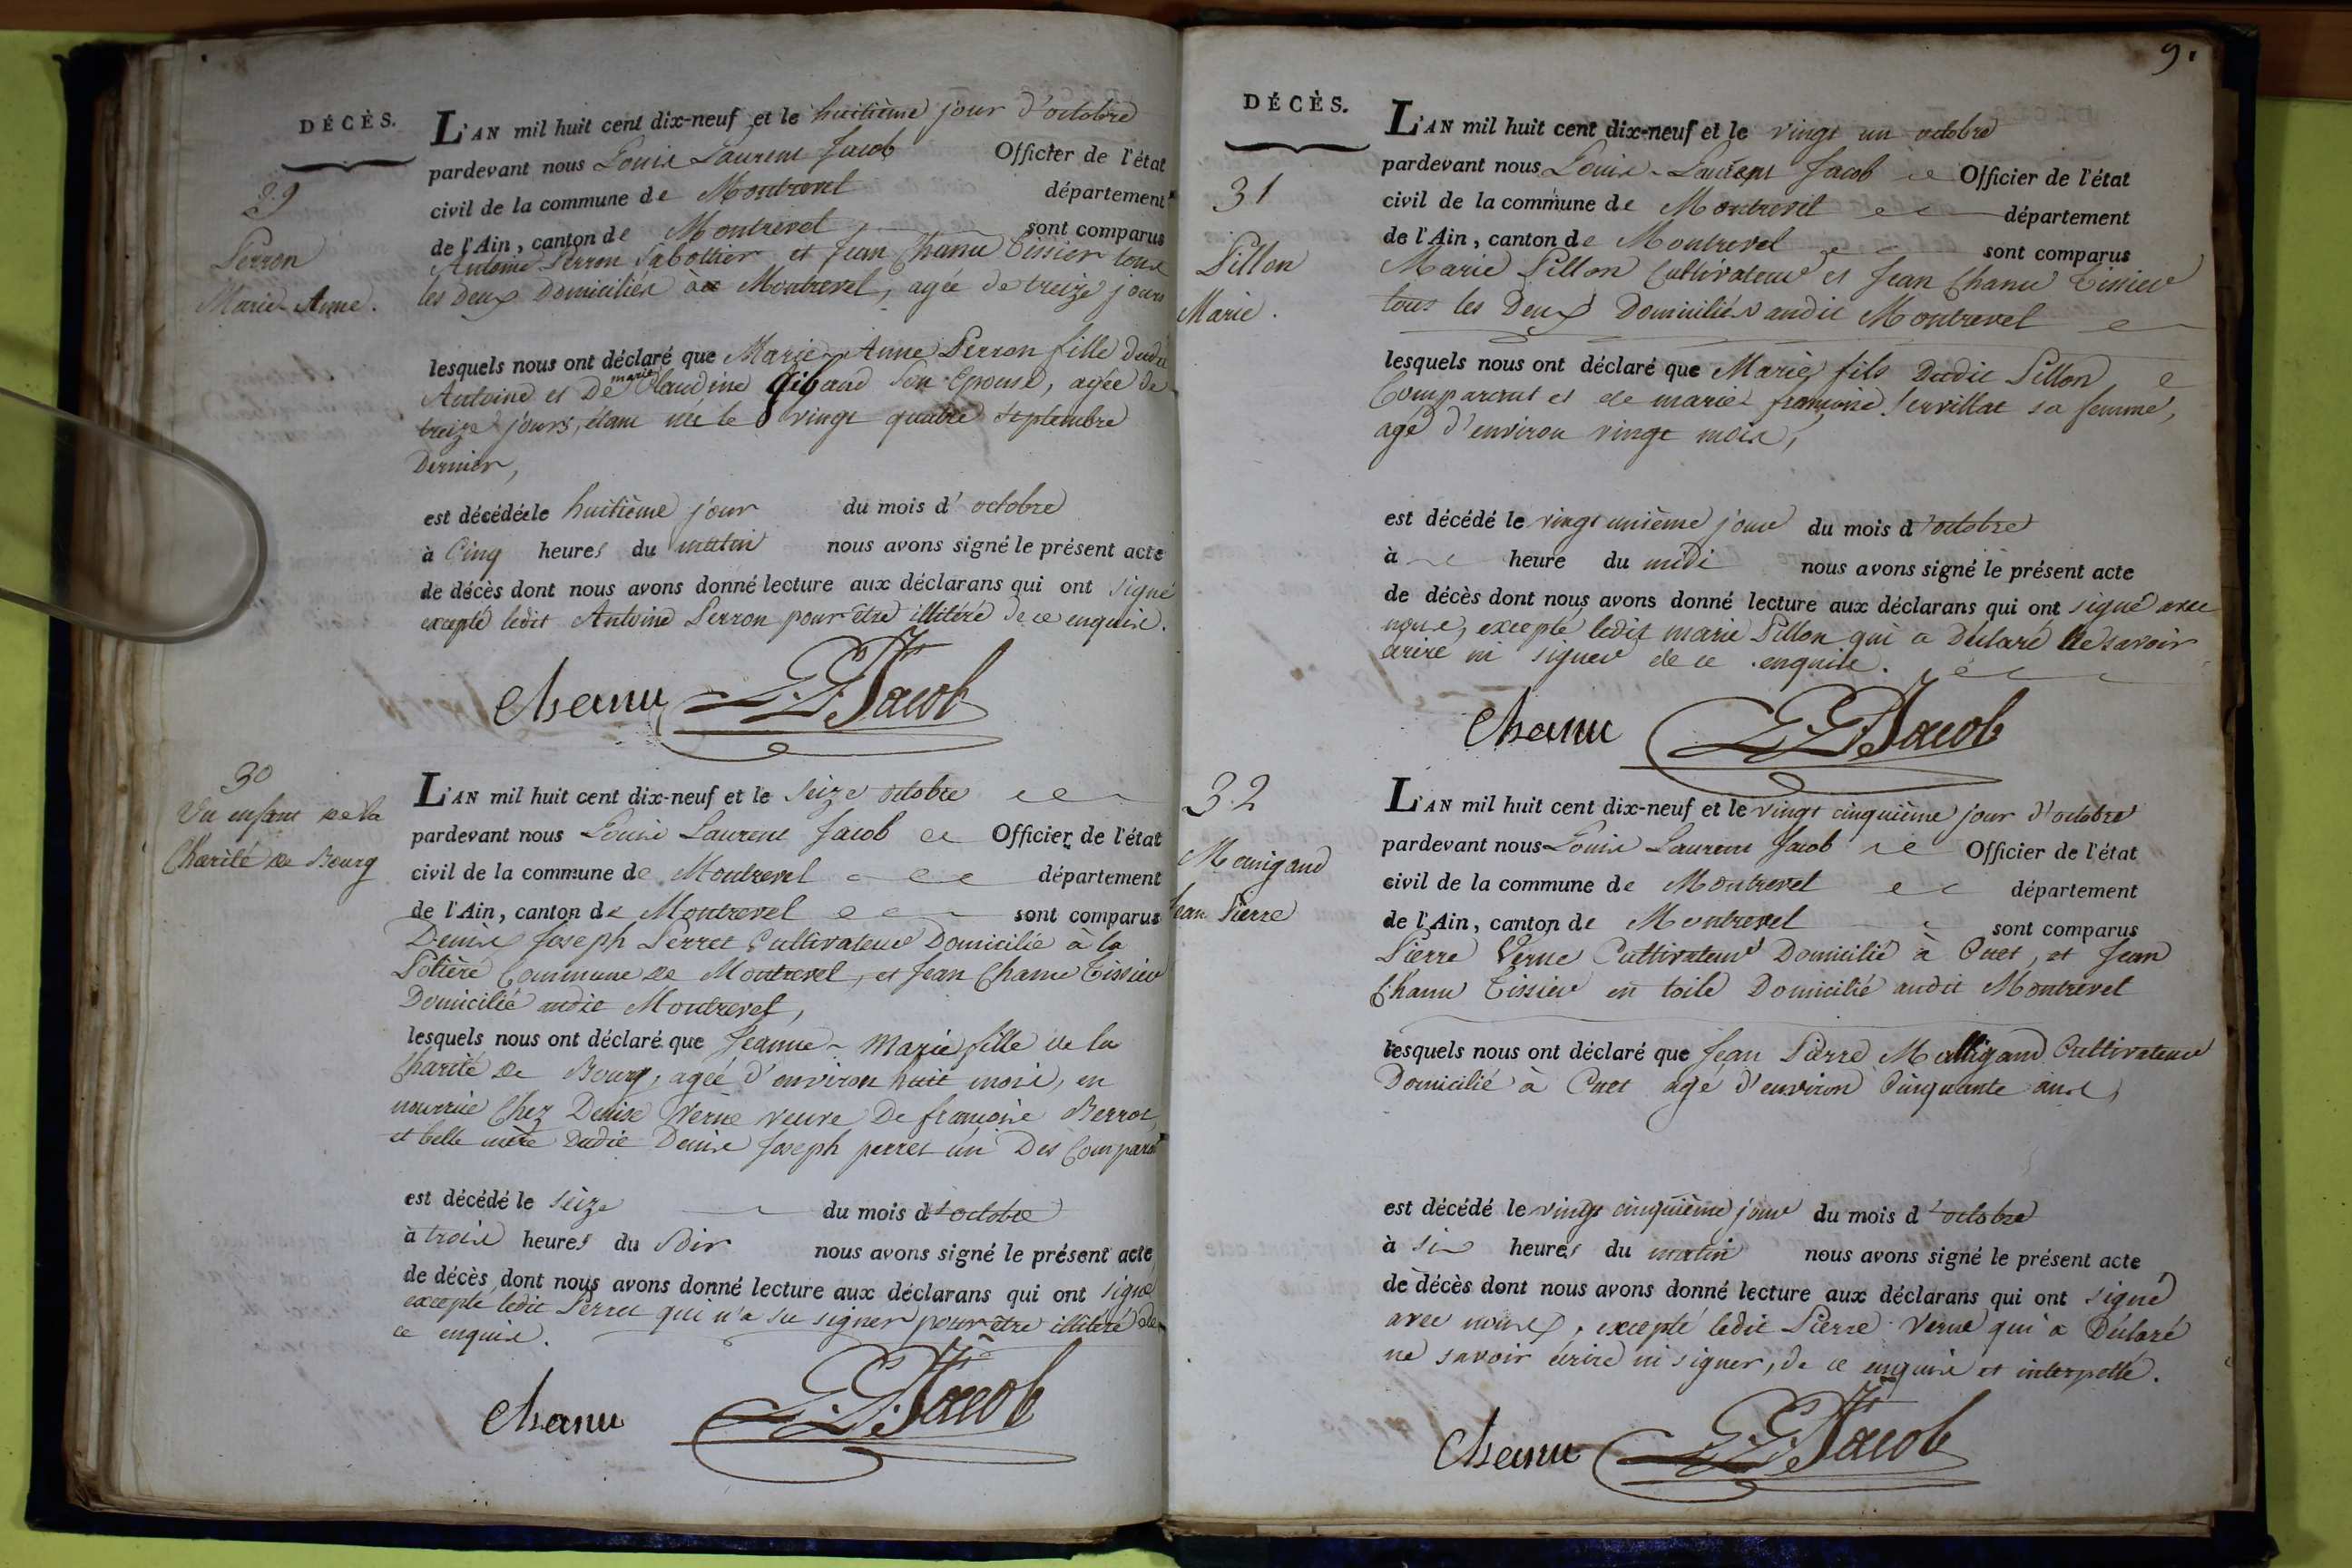 DÉCÈS.
29
Perron
Marie-Anne.
L'AN mil huit cent dix-neuf et le huitième jour d'octobre
pardevant nous Louis Laurent Jacob Officier de l'état
civil de la commune de Montrevel département
de l'Ain, canton de Montrevel sont comparus
Antoine Perron Sabottier et Jean Chanu Tissier tous
les deux Domiciliés à Montrevel, agée de treize jours
lesquels nous ont déclaré que Marie-Anne Perron fille dudit
Antoine et De marie Claudine Gibaud son Epouse, agée de
treize jours, étant née le vingt quatre septembre
Dernier,
est décédée le huitième jour du mois d'octobre
à Cinq heures du matin nous avons signé le présent acte
de décès dont nous avons donné lecture aux déclarans qui ont signé
excepté ledit Antoine Perron pour être illitéré de ce enquis.
Chanu L. L. Jacob
30
Un enfant de la
Charité de Bourg
L'AN mil huit cent dix-neuf et le seize octobre
pardevant nous Louis Laurent Jacob Officier de l'état
civil de la commune de Montrevel département
de l'Ain, canton de Montrevel sont comparus
Denis Joseph Perret Cultivateur Domicilié à la
Potière Commune de Montrevel, et Jean Chanu Tissier
Domicilié audit Montrevel,
lesquels nous ont déclaré que Jeanne-Marie fille de la
Charité de Bourg, agée d'environ huit mois, en
nourrice Chez Denise Verne veuve De françois Berrot
et belle mère Dudit Denis Joseph perret un Des Comparant
est décédé le seize du mois d'octobre
à trois heures du Soir nous avons signé le présent acte
de décès dont nous avons donné lecture aux déclarans qui ont signé
excepté ledit Perret qui n'a su signer pour être illitéré de
ce enquis.
Chanu L. L. Jacob
9.
DÉCÈS.
31
Pillon
Marie.
L'AN mil huit cent dix-neuf et le vingt un octobre
pardevant nous Louis-Laurent Jacob Officier de l'état
civil de la commune de Montrevel département
de l'Ain, canton de Montrevel sont comparus
Marie Pillon Cultivateur et Jean Chanu Tissier
tous les Deux Domiciliés audit Montrevel
lesquels nous ont déclaré que Marie, fils Dudit Pillon
Comparant et de marie françoise Servillat sa femme,
agé d'environ vingt mois,
est décédé le vingt unième jour du mois d'octobre
à heure du midi nous avons signé le présent acte
de décès dont nous avons donné lecture aux déclarans qui ont signé avec
nous, excepté ledit marie Pillon qui a Déclaré ne savoir
écrire ni signer de ce enquis.
Chanu L. L. Jacob
32
Jean Pierre
L'AN mil huit cent dix-neuf et le vingt cinquième jour d'octobre
pardevant nous Louis Laurent Jacob Officier de l'état
civil de la commune de Montrevel département
de l'Ain, canton de Montrevel sont comparus
Pierre Verne Cultivateur Domicilié à Cuet, et Jean
Chanu Tissier en toile Domicilié audit Montrevel
lesquels nous ont déclaré que Jean Pierre Cultivateur
Domicilié à Cuet agé d'environ Cinquante ans,
est décédé le vingt cinquième jour du mois d'octobre
à six heures du matin nous avons signé le présent acte
de décès dont nous avons donné lecture aux déclarans qui ont signé
avec nous, excepté ledit Pierre Verne qui a Déclaré
ne savoir écrire ni signer, de ce enquis et interpellé.
Chanu L. L. Jacob